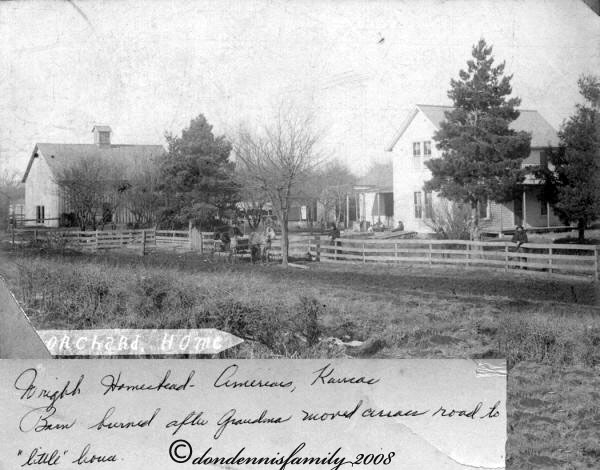 Orchard Home
Wright Homestead - Americus, Kansas
Barn burned after Grandma moved across road to
"little" house.
© dondennisfamily 2008